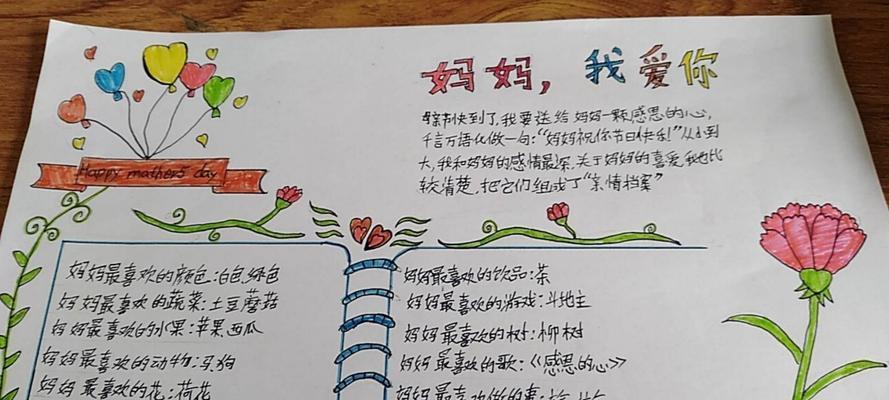 妈妈，我爱你
母亲节快到了，我要送给妈妈一颗感恩的心，
千言万语化做一句："妈妈祝你节日快乐！"从小到
大，我和妈妈的感情最深，关于妈妈的喜爱，我也比
较清楚，把它们组成了"亲情档案"
Happy mathers day
妈妈最喜欢的颜色：白色绿色
妈妈最喜欢的蔬菜：土豆蘑菇
妈妈最喜欢的水果：苹果西瓜
妈妈最喜欢的动物：马狗
妈妈最喜欢的花：荷花
妈妈最喜欢的饮品：茶
妈妈最喜欢的游戏：斗地主
妈妈最喜欢的树：柳树
妈妈最喜欢的歌：《感恩的心》
妈妈最喜欢做的事：